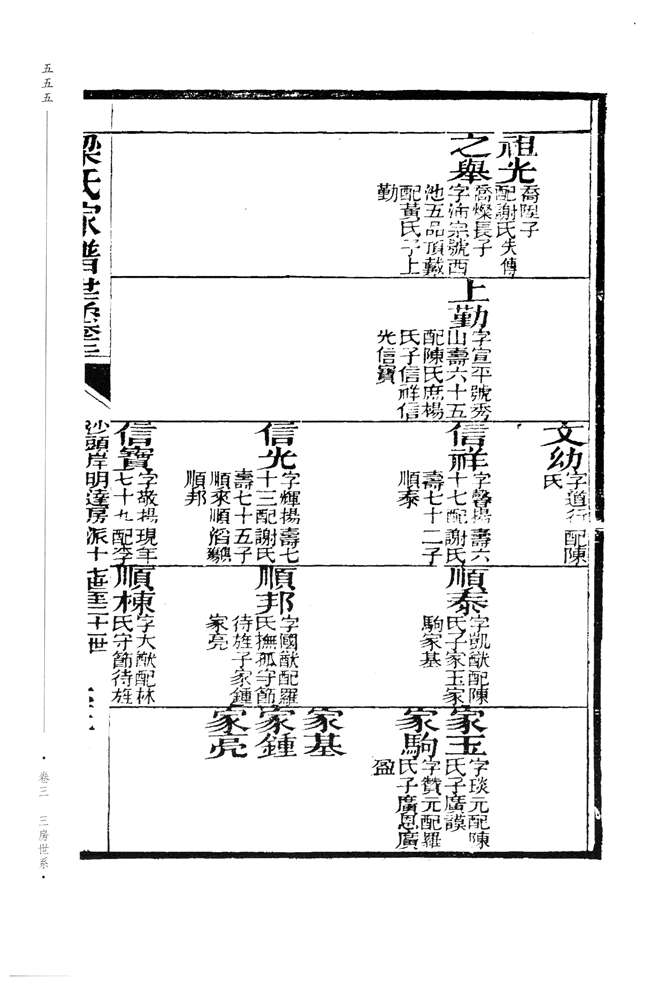 祖光
喬陞子
配謝氏失傳
之舉
喬燦長子
字沛宗號西
池五品頂戴
配黃氏子上
勤
上勤
字宣平號秀
山壽六十五
配陳氏庶楊
氏子信祥信
光信寶
文幼
字道行配陳
氏
信祥
字馨揚壽六
十七配謝氏
壽七十二子
順泰
信光
字輝揚壽七
十三配謝氏
壽七十五子
順來順滔
順邦
信寶
字敬揚現年
七十九配李
順泰
字凱猷配陳
氏子家玉家
駒家基
順邦
字國猷配羅
氏撫孤守節
待旌子家鍾
家亮
順棟
字大猷配林
氏守節待旌
家玉
字琰元配陳
氏子廣謨
家駒
字贊元配羅
氏子廣恩廣
盈
家基
家鍾
家亮
梁氏家譜世系卷三
沙頭岸明達房派十七世至二十一世
五五五
·卷三 三房世系·